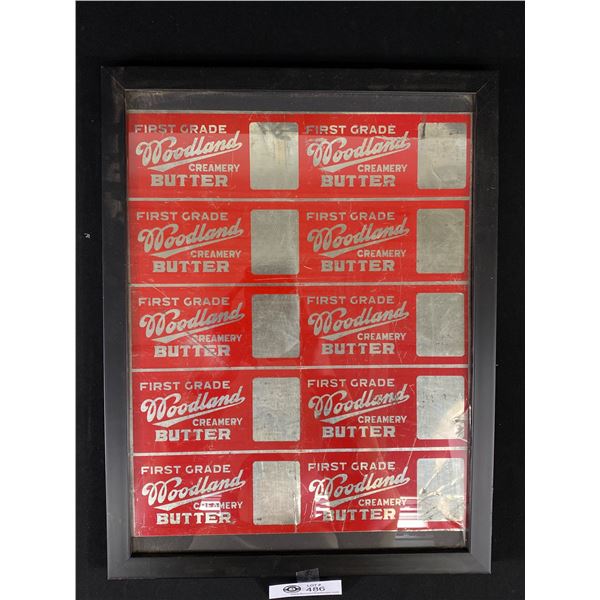 FIRST GRADE FIRST GRADE
Woodland Woodland
CREAMERY CREAMERY
BUTTER BUTTER
FIRST GRADE FIRST GRADE
Woodland Woodland
CREAMERY CREAMERY
BUTTER BUTTER
FIRST GRADE FIRST GRADE
Woodland Woodland
CREAMERY CREAMERY
BUTTER BUTTER
FIRST GRADE FIRST GRADE
Woodland Woodland
CREAMERY CREAMERY
BUTTER BUTTER
FIRST GRADE FIRST GRADE
Woodland Woodland
CREAMERY CREAMERY
BUTTER BUTTER
LOT#
486